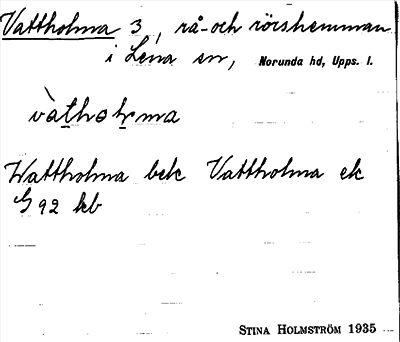 Vattholma 3, rå- och rörshemman
i Lena sn, Norunda hd, Upps. l.
vàtholma
Wattholma bek Vattholma ek
G 92 kb
STINA HOLMSTRÖM 1935